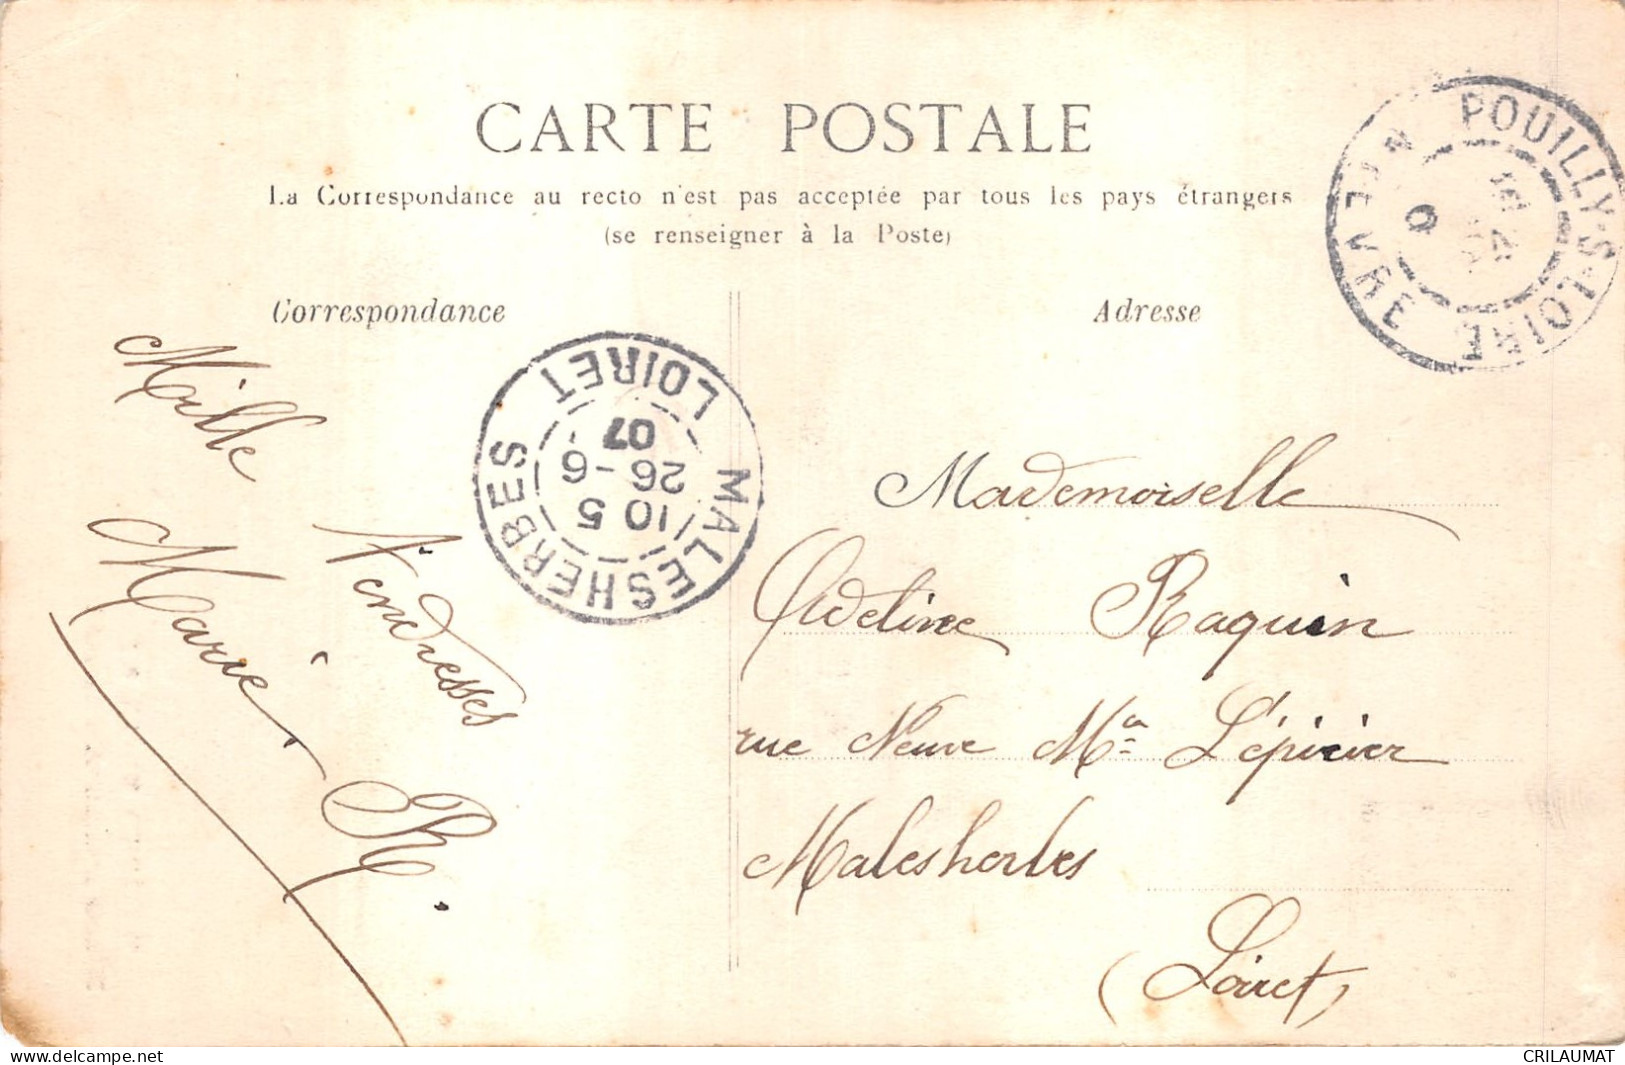 CARTE POSTALE
La Correspondance au recto n'est pas acceptée par tous les pays étrangers
(se renseigner à la Poste)
Correspondance
Adresse
POUILLY-S-LOIRE
NIEVRE
MALESHERBES
LOIRET
10 5
26-6
07
Mille
Tendresses
Marie R.
Mademoiselle
Adeline Raquin
rue Neuve Mn L'épicier
Malesherbes
(Loiret)
delcampe.net
CRILAUMAT